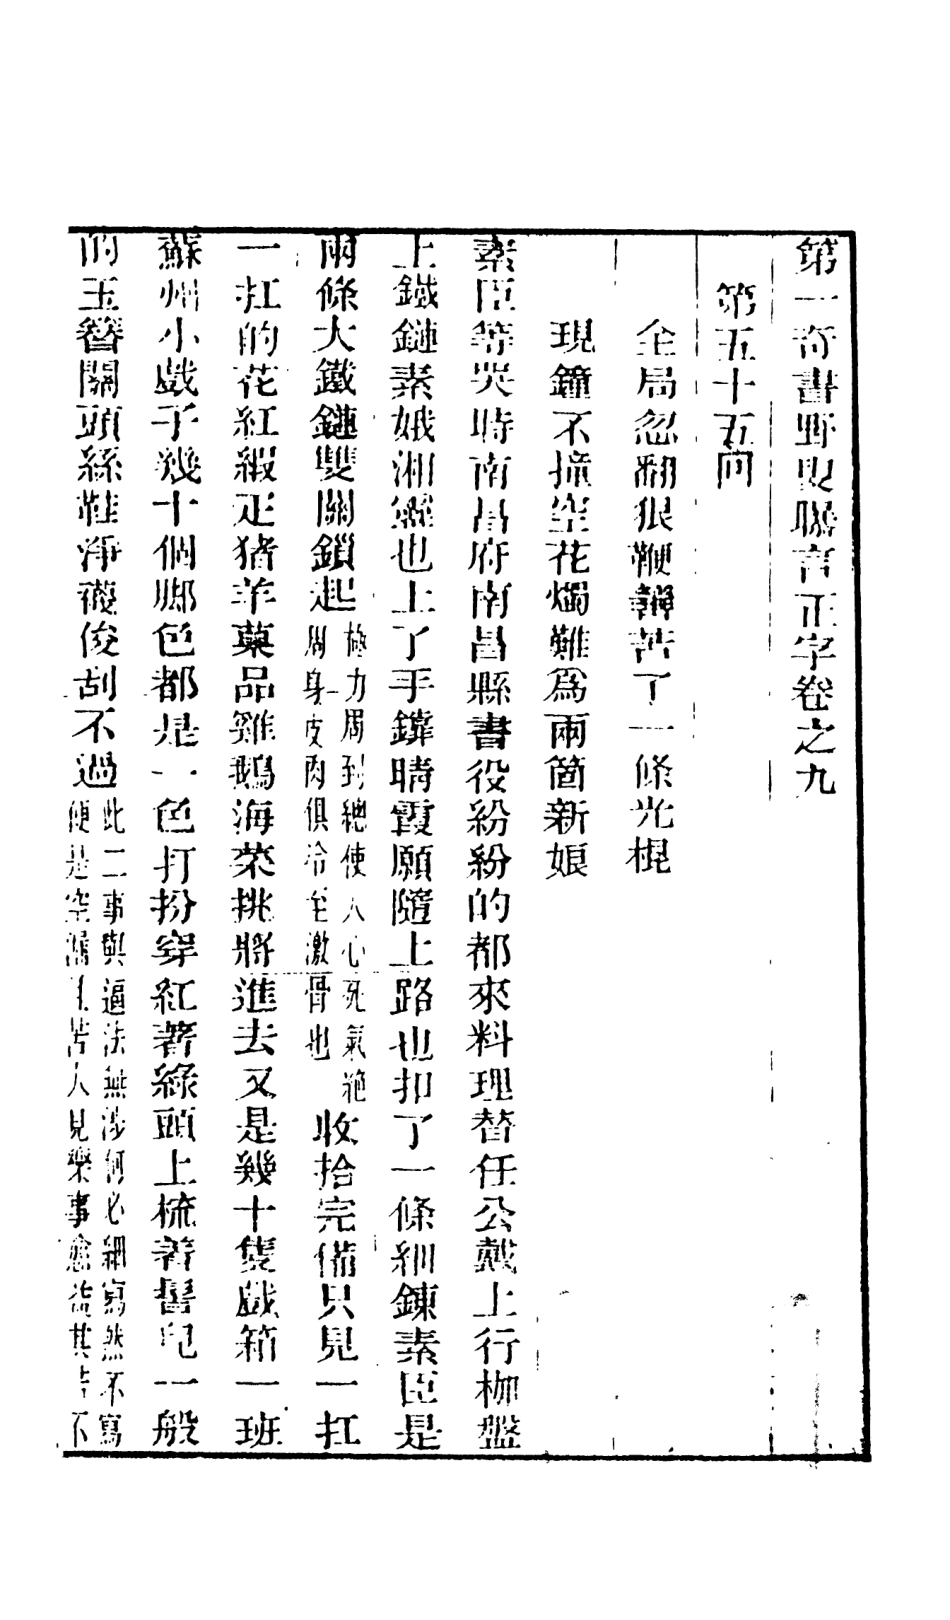 第一奇書野叟曝言正字卷之九
第五十五回
全局忽翻狠鞭韃苦了一條光棍
現鐘不撞空花燭難爲兩箇新娘
素臣等哭時南昌府南昌縣書役紛紛的都來料理替任公戴上行枷盤
上鐵鏈素娥湘靈也上了手鐘晴霞願隨上路也扣了一條細鍊素臣是
兩條大鐵鏈雙關鎖起極力周到總使人心死氣絶
周身皮肉俱冷至激骨也收拾完備只見一扛
一扛的花紅緞疋猪羊菓品雞鵝海菜挑將進去又是幾十隻戲箱一班
蘇州小戲子幾十個脚色都是一色打扮穿紅著綠頭上梳着髻兒一般
的玉簪關頭絲鞋淨襪俊刮不過此二事與逼法無涉何必細寫然不寫
便是空漏且苦人見樂事愈益其苦不